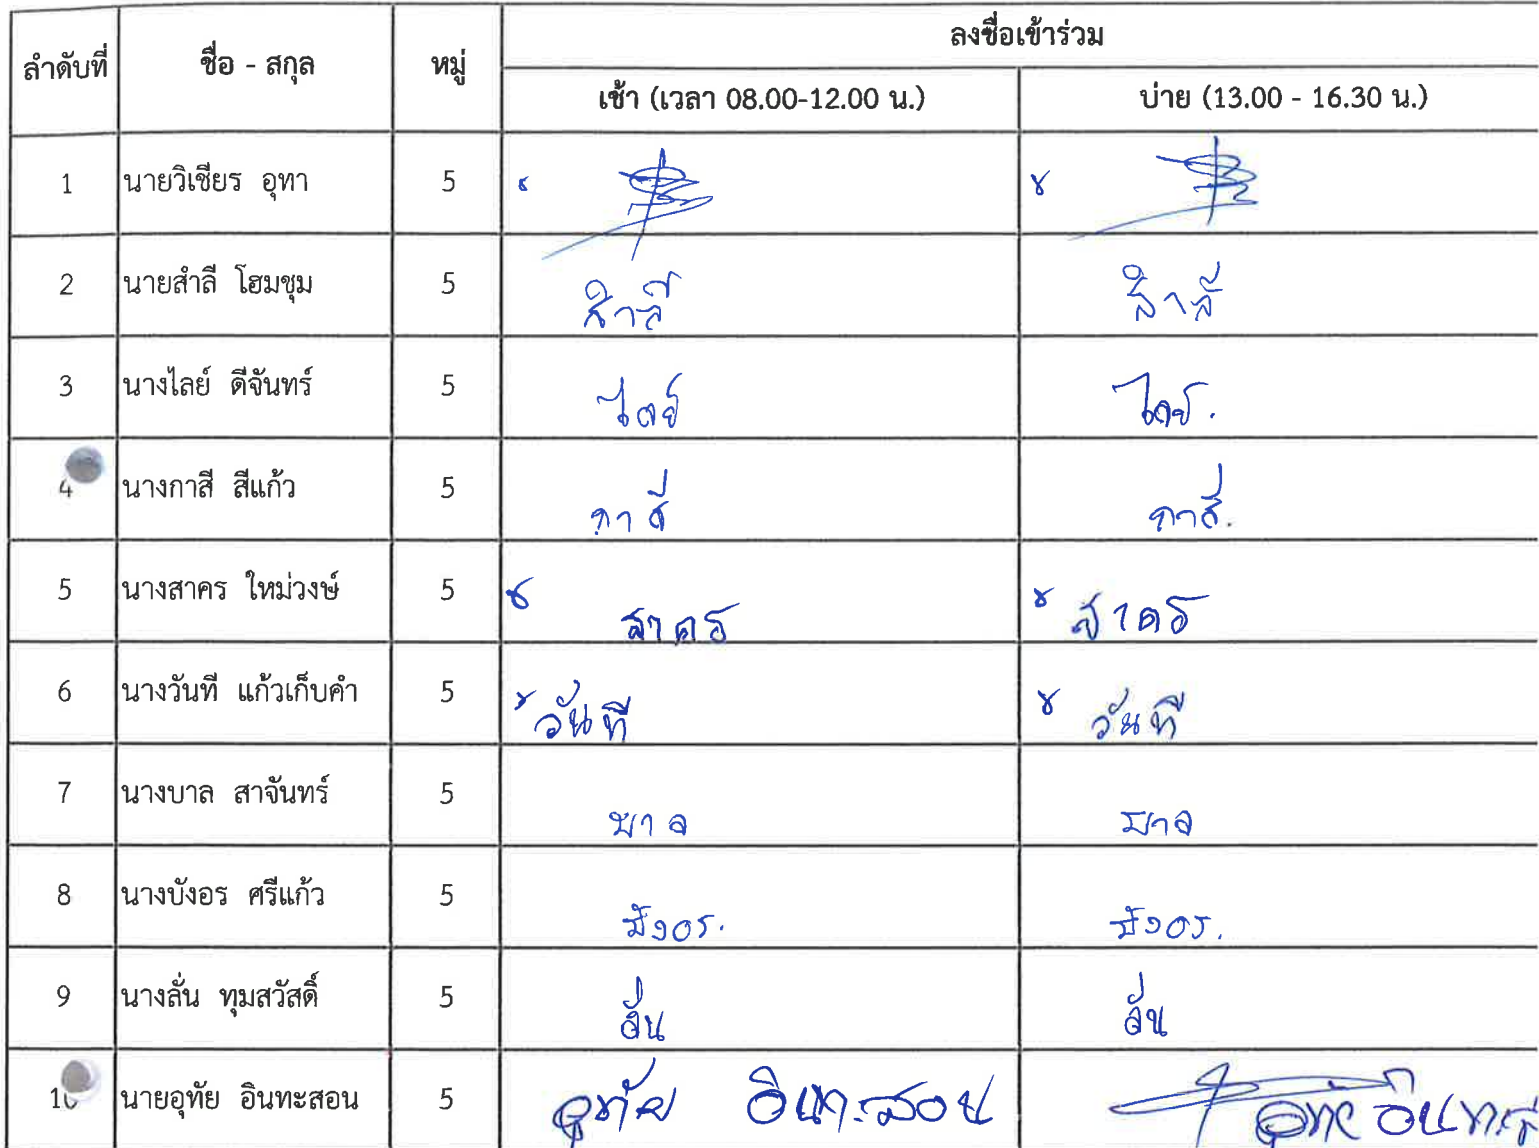 ลำดับที่ ชื่อ - สกุล หมู่ ลงชื่อเข้าร่วม
เช้า (เวลา 08.00-12.00 น.) บ่าย (13.00 - 16.30 น.)
1 นายวิเชียร อุทา 5
2 นายสำลี โฮมชุม 5 สำลี สำลี
3 นางไลย์ ดีจันทร์ 5 ไลย์ ไลย์.
4 นางกาสี สีแก้ว 5 กาสี กาสี.
5 นางสาคร ใหม่วงษ์ 5 สาคร สาคร
6 นางวันที แก้วเก็บคำ 5 วันที วันที
7 นางบาล สาจันทร์ 5 บาล บาล
8 นางบังอร ศรีแก้ว 5 บังอร. บังอร.
9 นางลั่น ทุมสวัสดิ์ 5 ลั่น ลั่น
10 นายอุทัย อินทะสอน 5 อุทัย อินทะสอน